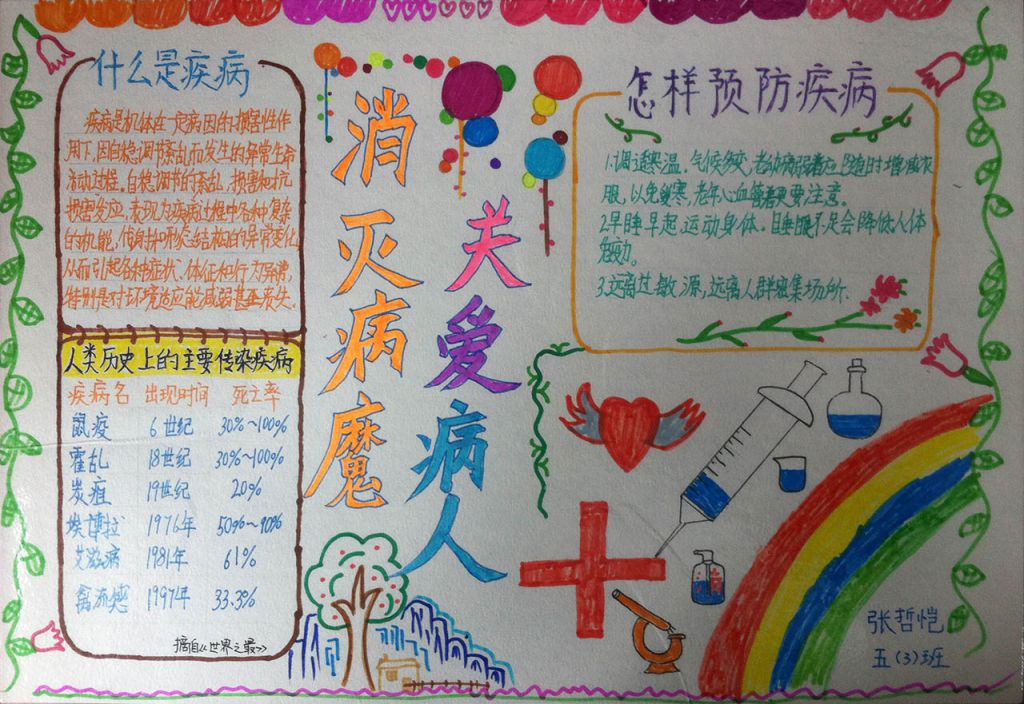 什么是疾病
疾病是机体在一定病因的损害性作
用下,因自稳调节紊乱而发生的异常生命
活动过程。自稳调节的紊乱,损害和抗
损害反应,表现为疾病过程中各种复杂
的机能,代谢和形态结构的异常变化
从而引起各种症状、体征和行为异常,
特别是对环境适应能减弱甚至丧失。
人类历史上的主要传染疾病
疾病名 出现时间 死亡率
鼠疫 6世纪 30%~100%
霍乱 18世纪 30%~100%
炭疽 19世纪 20%
埃博拉 1976年 50%~90%
艾滋病 1981年 61%
禽流感 1997年 33.3%
摘自《世界之最》
消灭病魔
关爱病人
怎样预防疾病
1.调适寒温。气候多变,老幼病弱者应随时增减衣
服,以免受寒,老年心血管者更要注意。
2.早睡早起,运动身体。目睡眠不足会降低人体
免疫力。
3.远离过敏源,远离人群密集场所.
张哲恺
五(3)班